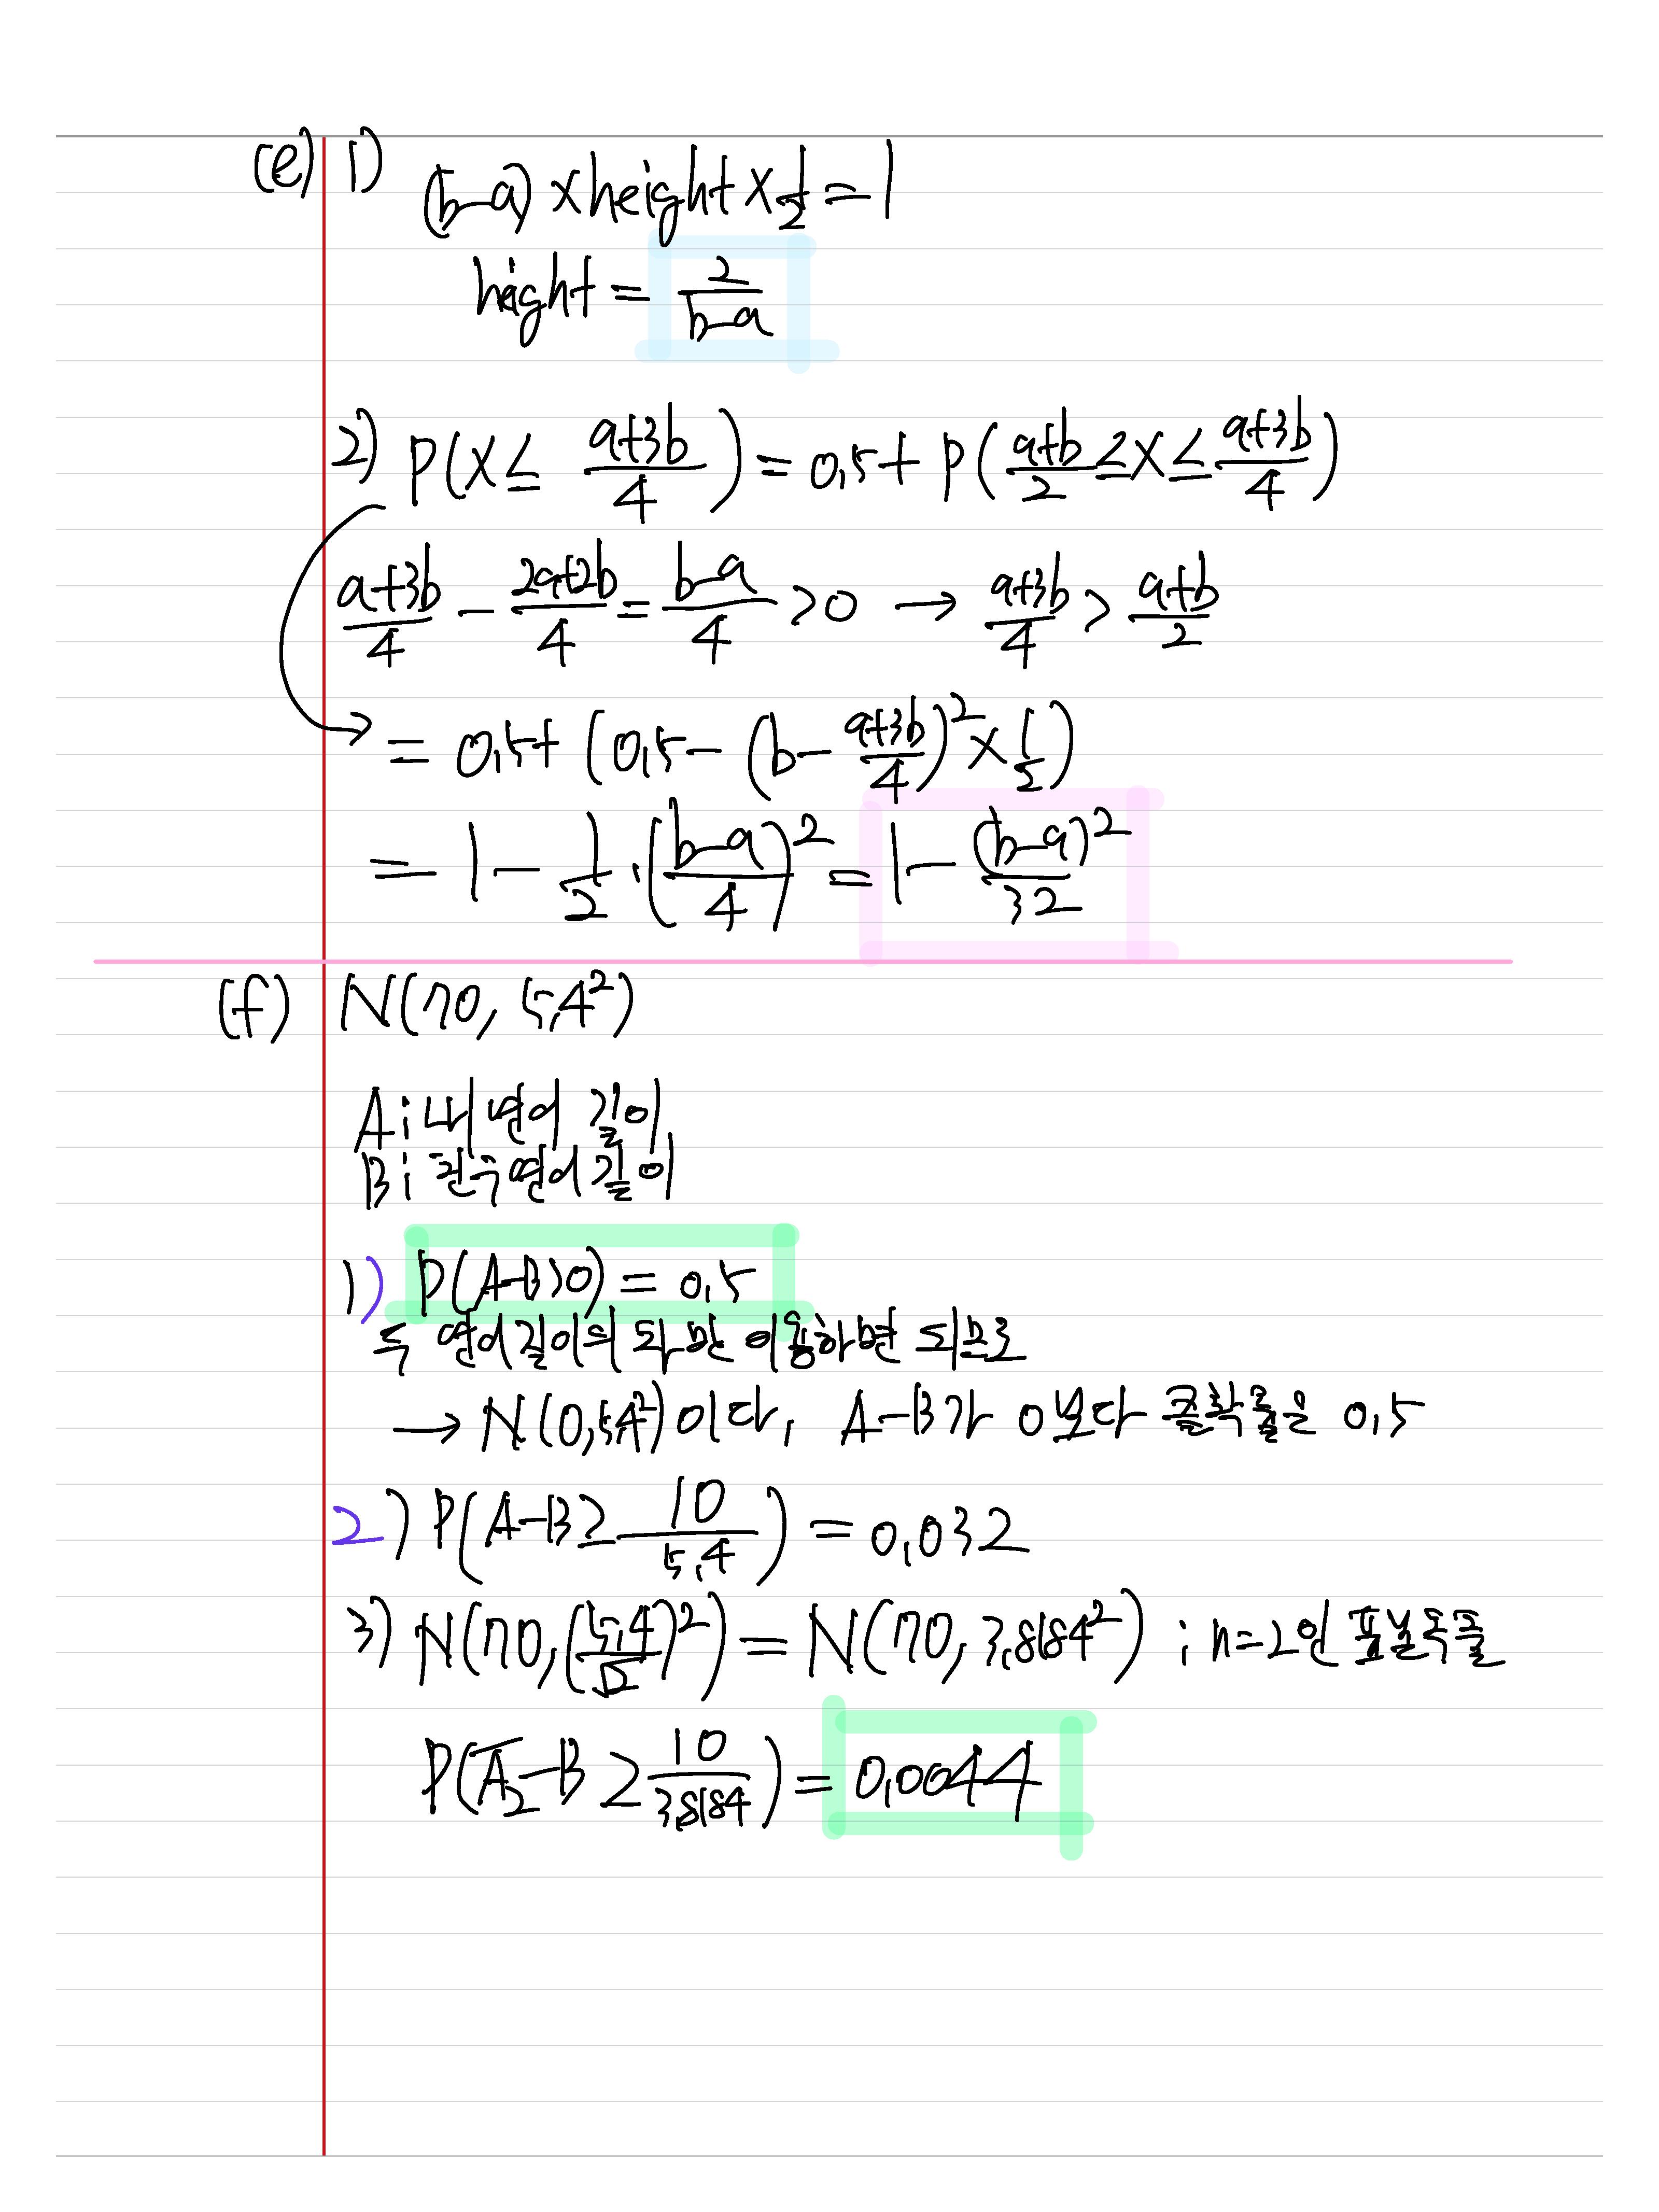 (e) 1) (b-a) × height × 1/2 = 1
height = 2/(b-a)
2) P(X ≤ (a+3b)/4) = 0.5 + P((a+b)/2 ≤ X ≤ (a+3b)/4)
(a+3b)/4 - (2a+2b)/4 = (b-a)/4 > 0 → (a+3b)/4 > (a+b)/2
= 0.5 + (0.5 - (b - (a+3b)/4)² × 1/2)
= 1 - 1/2 · ((b-a)/4)² = 1 - (b-a)²/32
(f) N(70, 5.4²)
A : 내 연어 길이
B : 친구 연어 길이
1) P(A-B>0) = 0.5
두 연어 길이의 차만 이용하면 되므로
→ N(0, 5.4²)이다. A-B가 0보다 클 확률은 0.5
2) P(A-B ≥ 10/5.4) = 0.032
3) N(70, (5.4/√2)²) = N(70, 3.8184²) ; n=2인
P(A̅₂-B ≥ 10/3.8184) = 0.0044